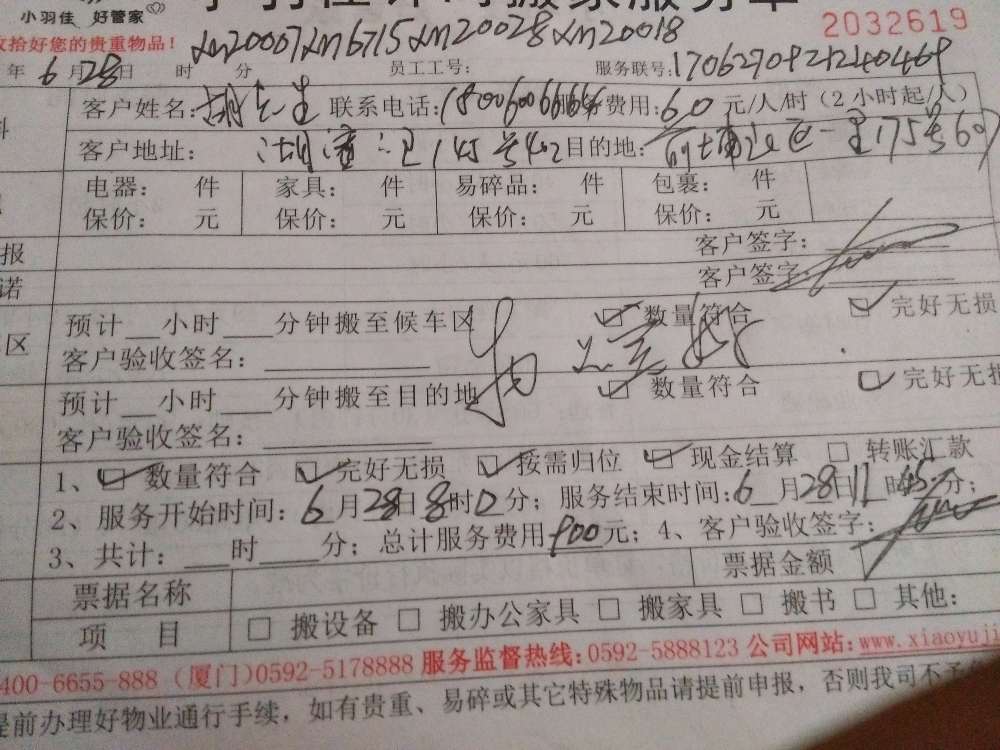 小羽佳 好管家
2032619
收拾好您的贵重物品！ xm20007xm6715xm20028xm20018
年6月28日 时 分 员工工号： 服务联号：
客户姓名：胡先生 联系电话：18006006666 费用：60元/人/时（2小时起/人）
客户地址： 145号402 目的地： 一里175号607
电器： 件 家具： 件 易碎品： 件 包裹： 件
保价： 元 保价： 元 保价： 元 保价： 元
报 客户签字：
诺 客户签字：
预计__小时___分钟搬至候车区 数量符合 完好无损
区 客户验收签名：
预计__小时___分钟搬至目的地 数量符合 完好无损
客户验收签名：
1、数量符合 完好无损 按需归位 现金结算 转账汇款
2、服务开始时间：6月28日8时0分；服务结束时间：6月28日11时45分；
3、共计：___时___分；总计服务费用900元；4、客户验收签字：
票据名称 票据金额
项 目 搬设备 搬办公家具 搬家具 搬书 其他：
400-6655-888（厦门）0592-5178888 服务监督热线：0592-5888123 公司网站：www.xiaoyuji
提前办理好物业通行手续，如有贵重、易碎或其它特殊物品请提前申报，否则我司不予